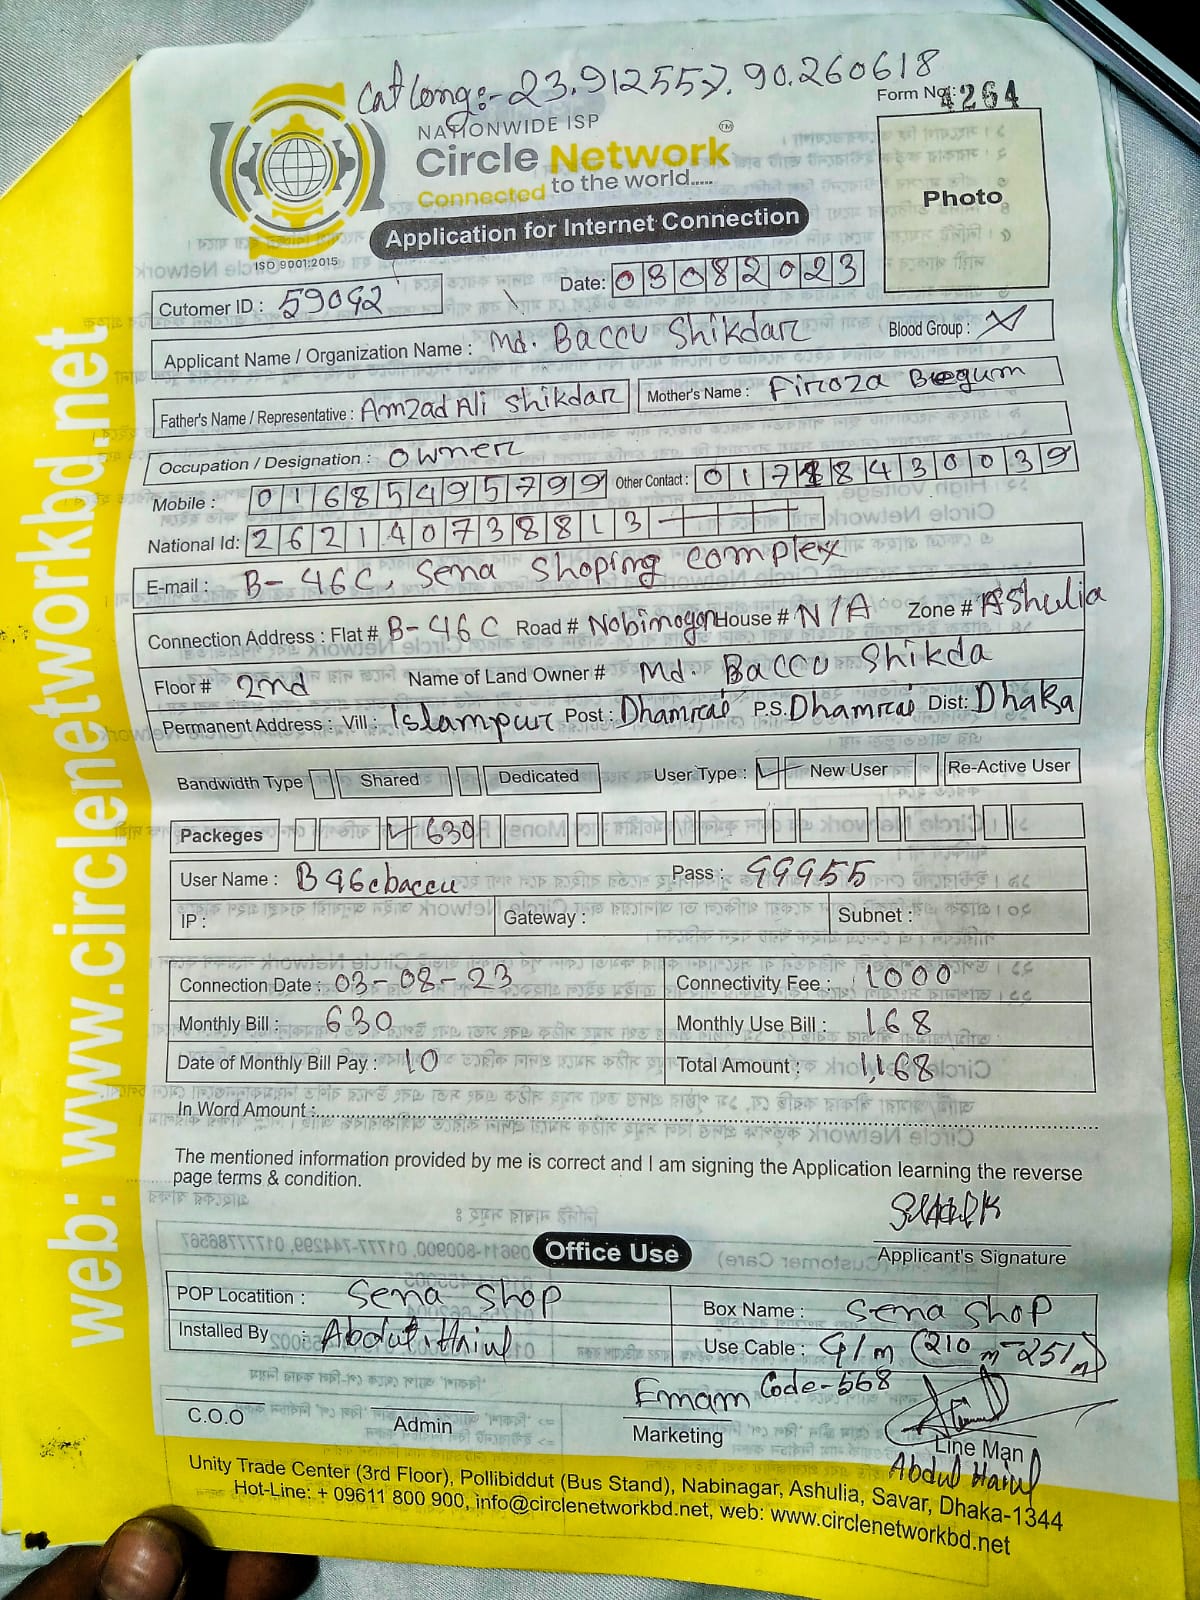 Cat long:- 23.912557, 90.260618
Form No: 4264
NATIONWIDE ISP
Circle Network™
Connected to the world.....
ISO 9001:2015
Application for Internet Connection
Photo
Cutomer ID : 59042
Date: 03082023
Applicant Name / Organization Name : Md. Baccu Shikdar Blood Group : X
Father's Name / Representative : Amzad Ali Shikdar Mother's Name : Firoza Begum
Occupation / Designation : Owner
Mobile : 01685495799 Other Contact : 017 8430039
National Id: 2621407388813
E-mail : B-46C, Sena Shoping complex
Connection Address : Flat # B-46C Road # Nobinogor House # N/A Zone # AShulia
Floor # 2nd Name of Land Owner # Md. Baccu Shikda
Permanent Address : Vill : Islampur Post : Dhamrai P.S. Dhamrai Dist: Dhaka
Bandwidth Type Shared Dedicated User Type : ✓ New User Re-Active User
Packeges ✓ 630
User Name : B46cbaccu Pass : 99955
IP : Gateway : Subnet :
Connection Date : 03-08-23 Connectivity Fee : 1000
Monthly Bill : 630 Monthly Use Bill : 168
Date of Monthly Bill Pay : 10 Total Amount : 1,168
In Word Amount :
The mentioned information provided by me is correct and I am signing the Application learning the reverse
page terms & condition.
Applicant's Signature
Office Use
POP Locatition : Sena Shop Box Name : Sena Shop
Installed By : Abdul Haiul Use Cable : G/m (210m-251m)
Emam Code-668
C.O.O Admin Marketing Line Man
Abdul Haiul
Unity Trade Center (3rd Floor), Pollibiddut (Bus Stand), Nabinagar, Ashulia, Savar, Dhaka-1344
Hot-Line: + 09611 800 900, info@circlenetworkbd.net, web: www.circlenetworkbd.net
web: www.circlenetworkbd.net